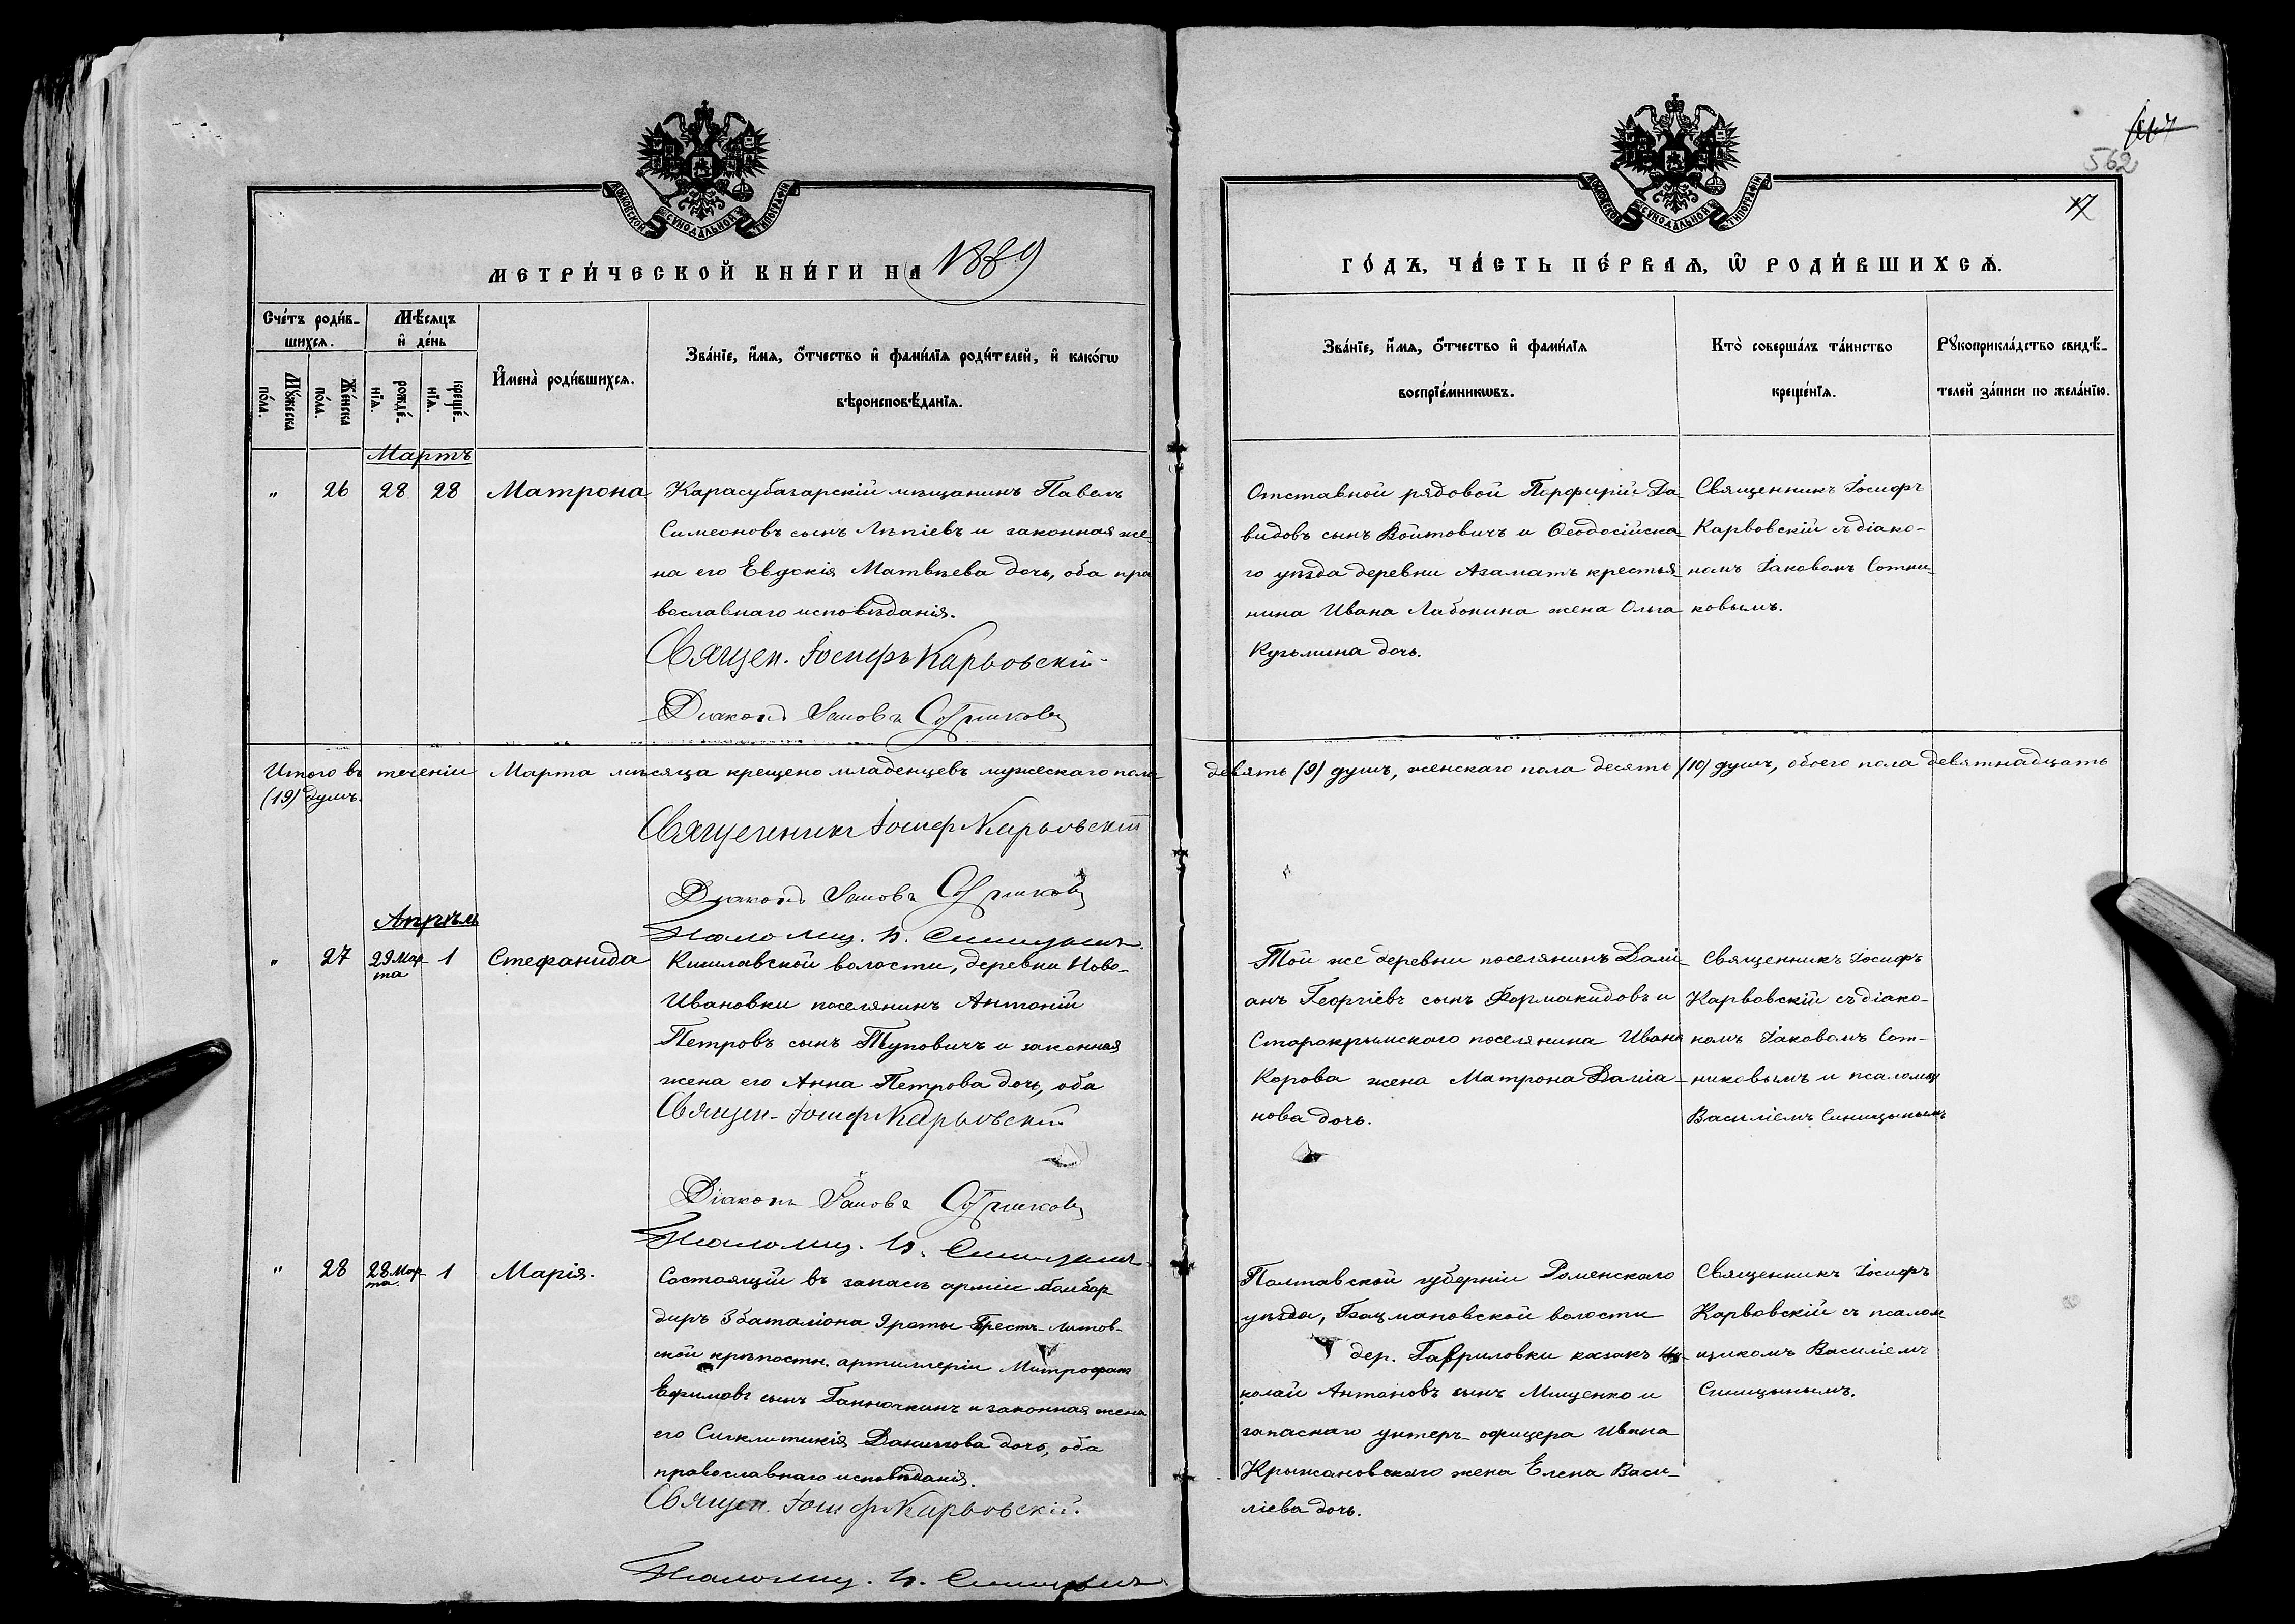 МОСКОВСКОЙ СѴНОДАЛЬНОЙ ТИПОГРАФІИ
МЕТРИ́ЧЕСКОЙ КНИ́ГИ НА 1889
Сче́тъ роди́в-
шихсѧ.
Мѣ́сѧцъ
и҆ де́нь
И҆мена̀ роди́вшихсѧ.
Зва́нїе, и҆́мѧ, ѻ҆́тчество и҆ фами́лїѧ роди́телей, и҆ како́гѡ
вѣроисповѣ́данїѧ.
Мꙋ́жеска
по́ла.
Же́нска
по́ла.
рожде́-
нїѧ.
креще́-
нїѧ.
Мартъ
" 26 28 28 Матрона
Карасубазарскій мѣщанинъ Павелъ
Симеоновъ сынъ Лѣпіевъ и законная же-
на его Евдокія Матвѣева дочь, оба пра
вославнаго исповѣданія.
Священ. Іосифъ Карвовскій
Діаконъ Іаковъ Сотниковъ
Итого въ теченіи Марта мѣсяца крещено младенцевъ мужескаго пола
(19) душъ.
Священникъ Іосиф Карвовскій
Діаконъ Іаковъ Сотниковъ
Псаломщ. В. Синицынъ.
Апрѣль
" 27 29 Мар- 1 Стефанида
та
Кишлавской волости, деревни Ново-
Ивановки поселянинъ Антоній
Петровъ сынъ Туповичъ и законная
жена его Анна Петрова дочь, оба
Священ. Іосиф Карвовскій
Діаконъ Іаковъ Сотниковъ
Псаломщ. В. Синицынъ.
" 28 28 Мар- 1 Марія.
та.
Состоящій въ запасѣ арміи бомбар
диръ 3 баталіона 9 роты Брестъ-Литов-
ской крѣпостн. артиллеріи Митрофанъ
Ефимовъ сынъ Ганночкинъ и законная жена
его Сигклитикія Данилова дочь, оба
православнаго исповѣданія.
Священ. Іосиф Карвовскій.
Псаломщ. В. Синицынъ
562
17
МОСКОВСКОЙ СѴНОДАЛЬНОЙ ТИПОГРАФІИ
ГО́ДЪ, ЧА́СТЬ ПЕ́РВАѦ, Ѡ҆ РОДИ́ВШИХСѦ.
Зва́нїе, и҆́мѧ, ѻ҆́тчество и҆ фами́лїѧ
воспрїе́мникѡвъ.
Кто̀ соверша́лъ та́инство
креще́нїѧ.
Рꙋкоприкла́дство свидѣ́-
телей за́писи по жела́нїю.
Отставной рядовой Порфирій Да-
видовъ сынъ Войтовичъ и Ѳеодосійска-
го уѣзда деревни Азаматъ крестья-
нина Ивана Лабонина жена Ольга
Кузьмина дочь.
Священникъ Іосифъ
Карвовскій съ діако-
номъ Іаковомъ Сотни-
ковымъ.
девять (9) душъ, женскаго пола десять (10) душъ, обоего пола девятнадцать
Той же деревни поселянинъ Далі-
анъ Георгіевъ сынъ Фармакидовъ и
Старокрымскаго поселянина Ивана
Корова жена Матрона Даміа-
нова дочь.
Священникъ Іосифъ
Карвовскій съ діако-
номъ Іаковомъ Сот-
никовымъ и псаломщ
Василіемъ Синицынымъ
Полтавской губерніи Роменскаго
уѣзда, Гоцмановской волости
дер. Гавриловки казакъ Ни-
колай Антоновъ сынъ Мищенко и
запаснаго унтеръ-офицера Ивана
Крыжановскаго жена Елена Васи-
ліева дочь.
Священникъ Іосифъ
Карвовскій съ псалом
щикомъ Василіемъ
Синицынымъ.